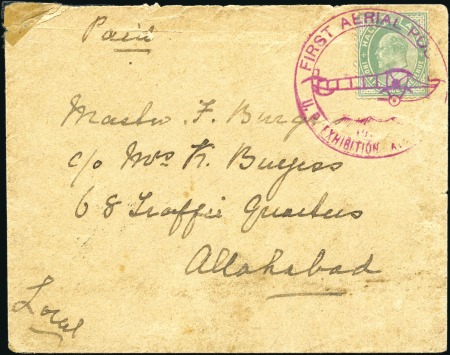 Paid
FIRST AERIAL POST
HALF
U.P. EXHIBITION
Master F. Burgess
c/o Mrs K. Burgess
68 Traffic Quarters
Allahabad
Local